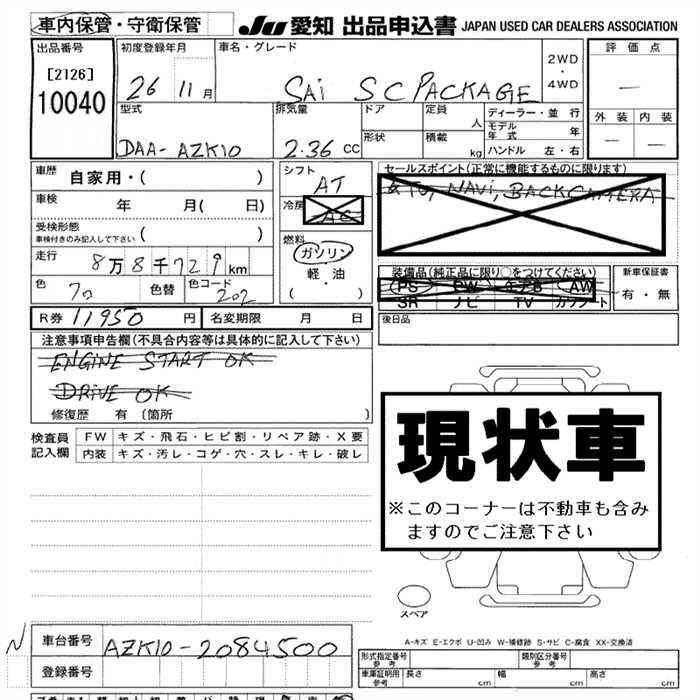 車内保管・守衛保管 JU 愛知 出品申込書 JAPAN USED CAR DEALERS ASSOCIATION
出品番号 初度登録年月 車名・グレード 評価点
[2126] 26 11月 SAI S C PACKAGE 2WD・4WD —
10040
型式 排気量 ドア 定員 人 ディーラー・並行 外装 内装
DAA-AZK10 2.36 CC 形状 積載 kg モデル年式 年 — —
ハンドル 左・右
車歴 自家用・( ) シフト AT セールスポイント(正常に機能するものに限ります)
車検 年 月( 日) 冷房 AC TV, NAVI, BACK CAMERA
受検形態 ( )
車検付きのみ記入して下さい
燃料 ガソリン 軽・油 ( ・ )
走行 8万8千729km 装備品(純正品に限り○をつけてください) 新車保証書
色 クロ 色替 色コード 202 PS PW AW 有・無
SR ナビ TV
R券 11950円 名変期限 月 日 後日品
注意事項申告欄(不具合内容等は具体的に記入して下さい)
ENGINE START OK
DRIVE OK
修復歴 有〔箇所 〕
検査員記入欄 FW キズ・飛石・ヒビ割・リペア跡・X要
内装 キズ・汚レ・コゲ・穴・スレ・キレ・破レ
現状車
※このコーナーは不動車も含み
ますのでご注意下さい
スペア
A-キズ E-エクボ U-凹み W-補修跡 S-サビ C-腐食 XX-交換済
N 車台番号 AZK10-2084500
登録番号
形式指定番号 参考 類別区分番号 参考
車庫証明用 参考 長さ cm 幅 cm 高さ cm